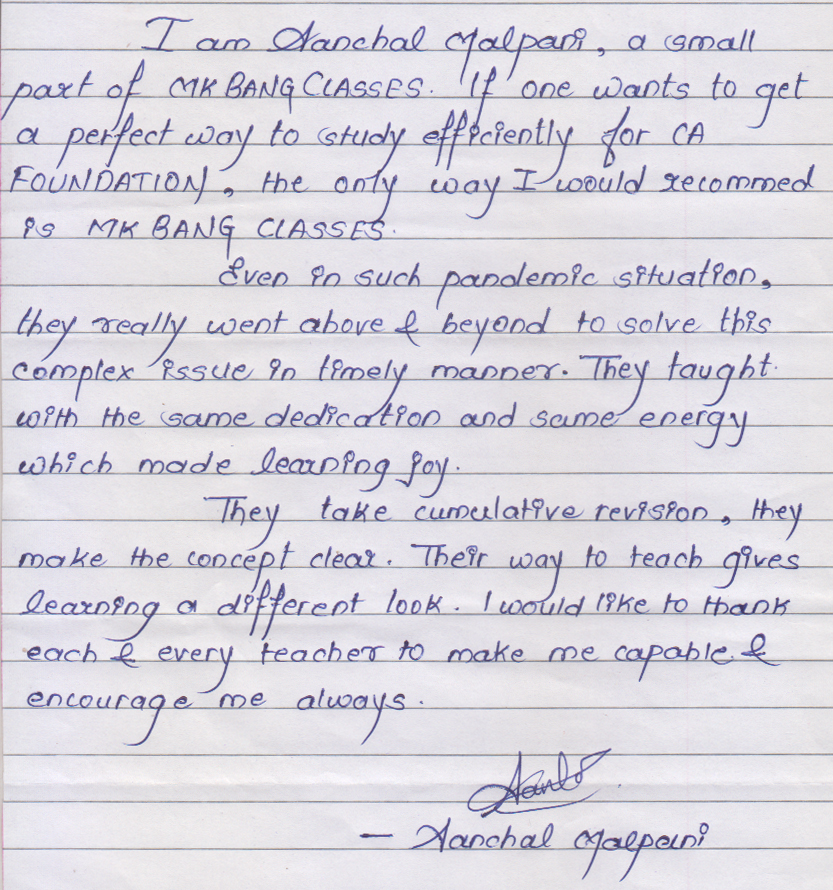 I am Aanchal Malpani, a small
part of MK BANG CLASSES. If one wants to get
a perfect way to study efficiently for CA
FOUNDATION, the only way I would recommed
is MK BANG CLASSES.
Even in such pandemic situation,
they really went above & beyond to solve this
complex issue in timely manner. They taught
with the same dedication and same energy
which made learning joy.
They take cumulative revision, they
make the concept clear. Their way to teach gives
learning a different look. I would like to thank
each & every teacher to make me capable &
encourage me always.
— Aanchal Malpani